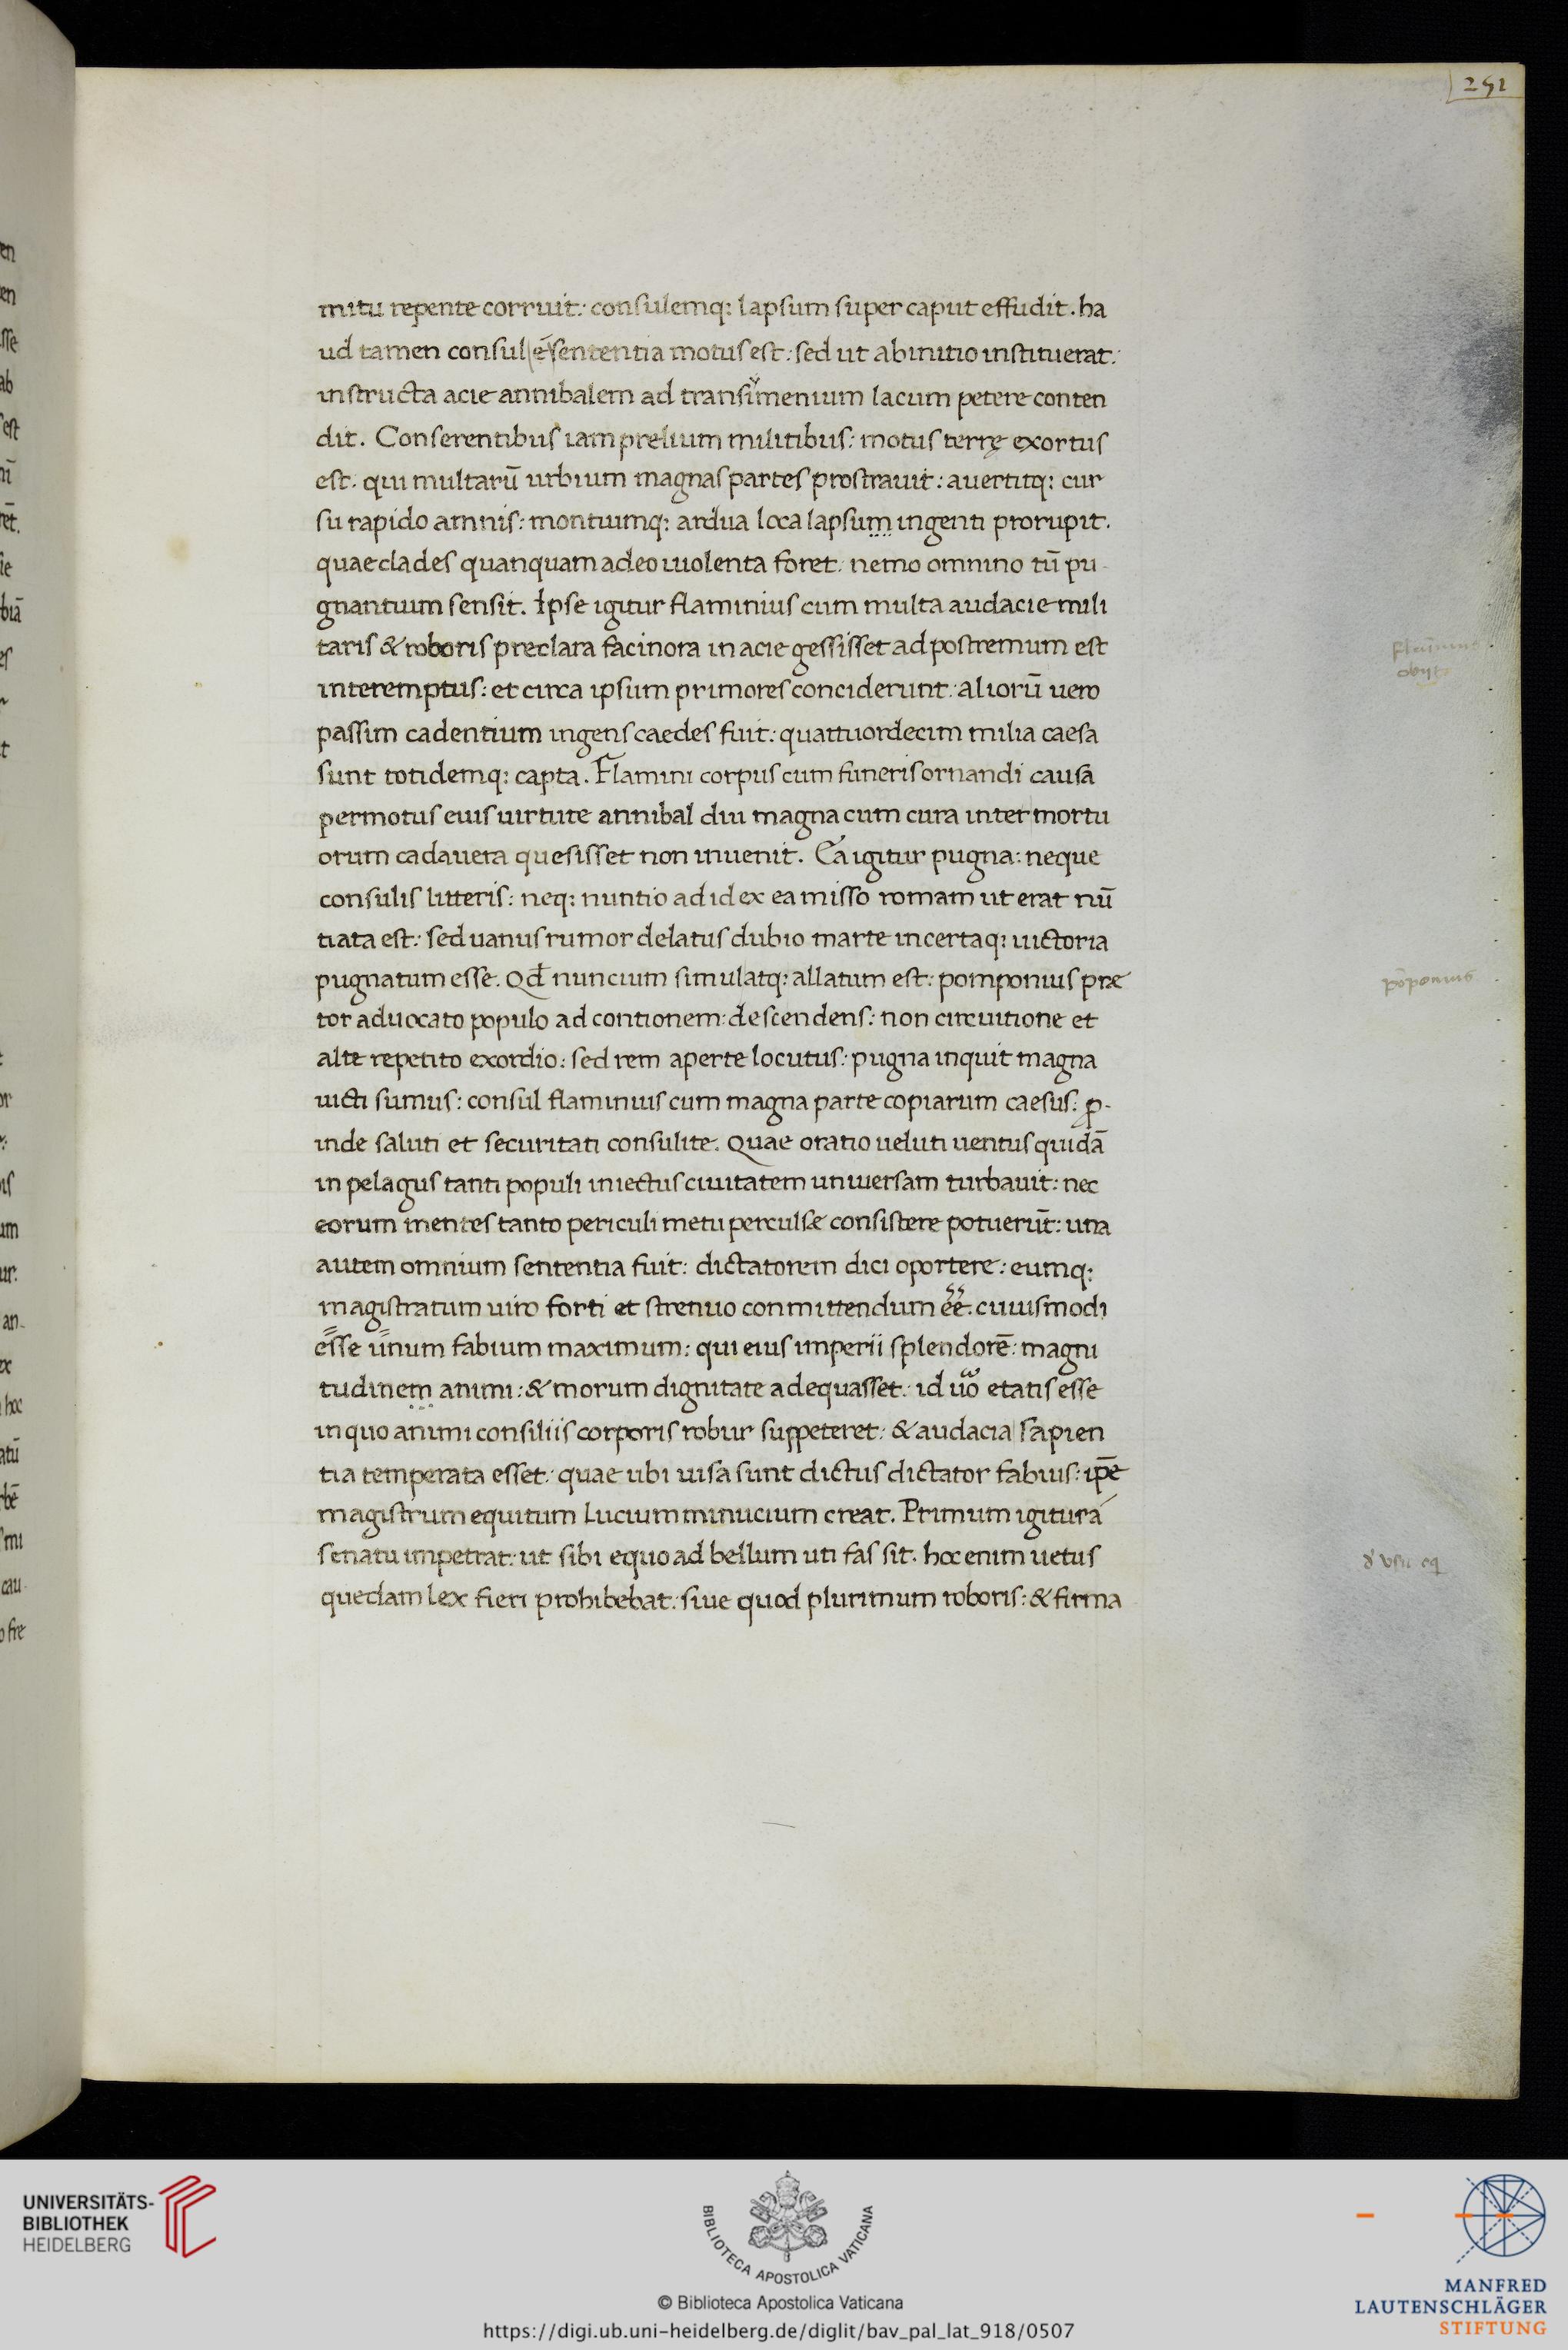 251
mitu repente corruit: consulemq: lapsum super caput effudit. ha
ud tamen consul ē sententia motus est: sed ut ab initio instituerat:
instructa acie annibalem ad transimenium lacum petere conten
dit. Conserentibus iam prelium militibus: motus terrę exortus
est. qui multarū urbium magnas partes prostrauit: auertitq: cur
su rapido amnis: montiumq: ardua loca lapsum ingenti prorupit.
quae clades quanquam adeo uiolenta foret: nemo omnino tū pu-
gnantium sensit. Ipse igitur flaminius cum multa audacie mili
taris & roboris preclara facinora in acie gessisset ad postremum est
interemptus: et circa ipsum primores conciderunt: aliorū uero
passim cadentium ingens caedes fuit: quattuordecim milia caesa
sunt totidemq: capta. Flamini corpus cum funeris ornandi causa
permotus eius uirtute annibal diu magna cum cura inter mortu
orum cadauera quesisset non inuenit. Ea igitur pugna: neque
consulis litteris: neq: nuntio ad id ex ea misso romam ut erat nū
tiata est: sed uanus rumor delatus dubio marte incertaq: uictoria
pugnatum esse. Qđ nuncium simulatq: allatum est: pomponius prae
tor aduocato populo ad contionem: descendens: non circuitione et
alte repetito exordio: sed rem aperte locutus: pugna inquit magna
uicti sumus: consul flaminius cum magna parte copiarum caesus: ꝓ-
inde saluti et securitati consulite. Quae oratio ueluti uentus quidā
in pelagus tanti populi iniectus ciuitatem uniuersam turbauit: nec
eorum mentes tanto periculi metu perculse consistere potuerūt: una
autem omnium sententia fuit: dictatorem dici oportere: eumq:
magistratum uiro forti et strenuo conmittendum ēe. cuiusmodi
esse unum fabium maximum: qui eius imperii splendorē: magni
tudinem animi: & morum dignitate adequasset: id uo etatis esse
in quo animi consiliis corporis robur suppeteret: & audacia sapien
tia temperata esset: quae ubi uisa sunt dictus dictator fabius: ip̄e
magistrum equitum Lucium minucium creat. Primum igitur á
senatu impetrat: ut sibi equo ad bellum uti fas sit. hoc enim uetus
quedam lex fieri prohibebat: siue quod plurimum roboris: & firma
pōponius
UNIVERSITÄTS-
BIBLIOTHEK
HEIDELBERG
BIBLIOTECA APOSTOLICA VATICANA
© Biblioteca Apostolica Vaticana
https://digi.ub.uni-heidelberg.de/diglit/bav_pal_lat_918/0507
MANFRED
LAUTENSCHLÄGER
STIFTUNG